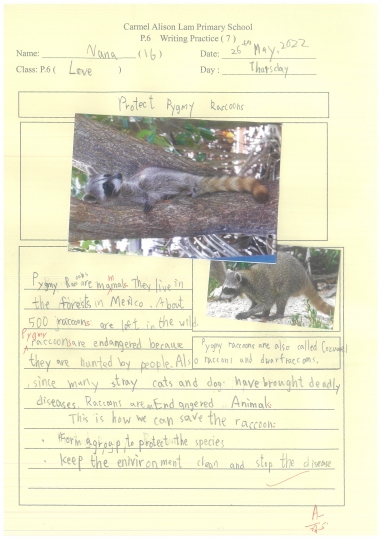 Carmel Alison Lam Primary School
P.6 Writing Practice ( 7 )
Name: Nana (16) Date: 26th May, 2022
Class: P.6 ( Love ) Day : Thursday
Protect Pygmy Raccoons
Pygmy are mammals They live in
the forests in Mexico. About
500 raccoons are left in the wild.
Pygmy raccoons are also called Cozumel
raccoons and dwarf raccoons.
Pygmy
Raccoons are endangered because
they are hunted by people. Also
, since many stray cats and dogs have brought deadly
diseases. Raccoons are Endangered Animals
This is how we can save the raccoon:
• Form a group to protect the species
• Keep the environment clean and stop the disease
A